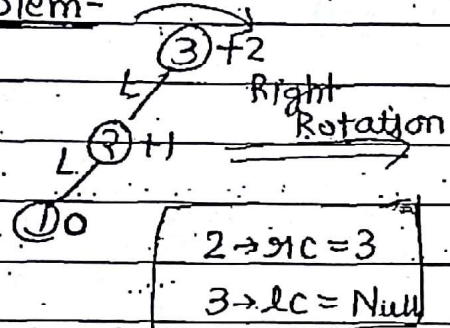 blem-
3 +2
L
Right
Rotation
2 +1
L
1 0
2→rc = 3
3→lc = Null